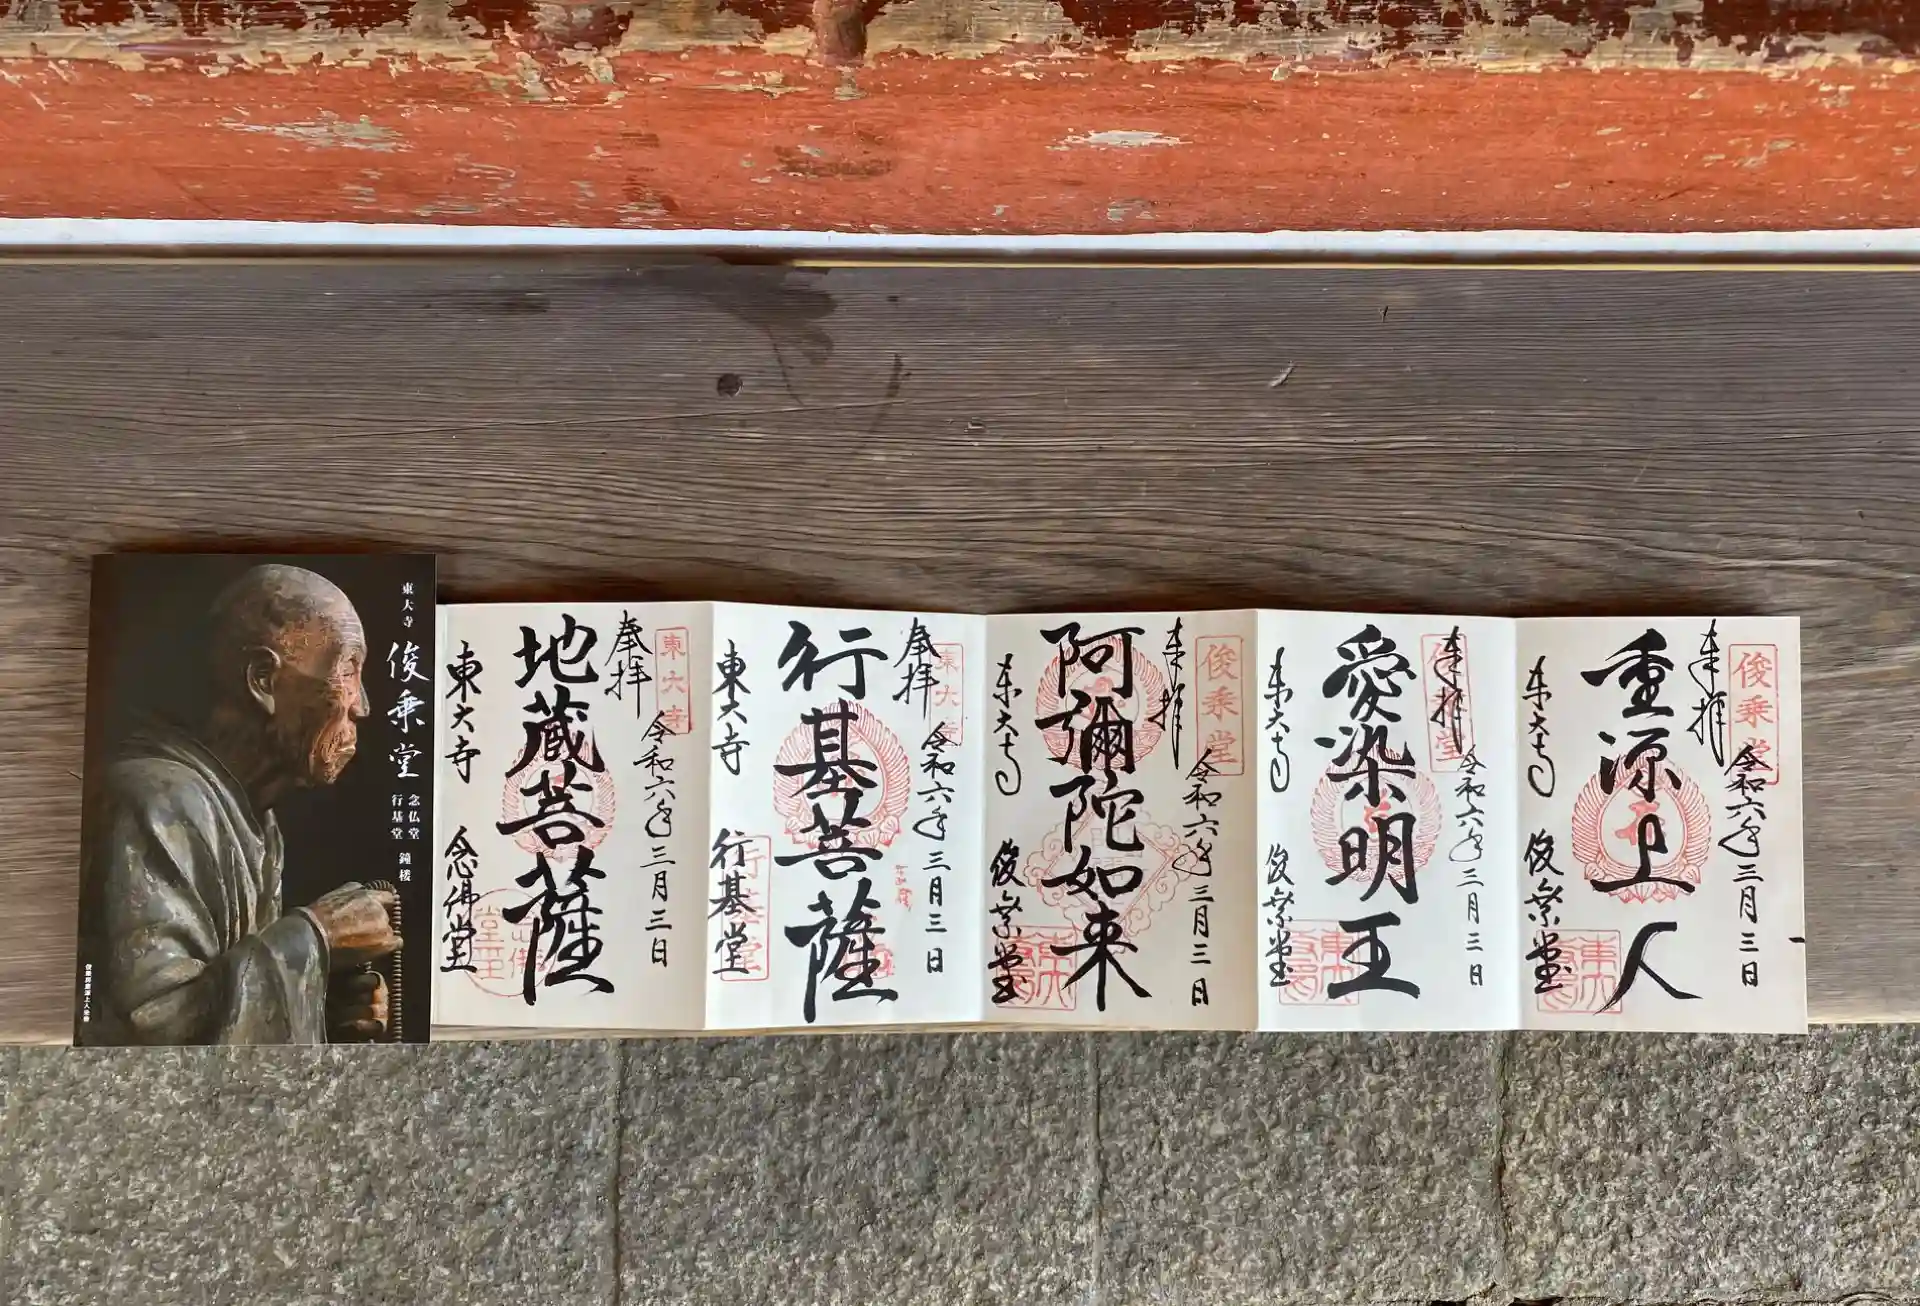 東大寺
俊乗堂
念仏堂
行基堂
鐘楼
俊乗房重源上人坐像
東大寺
奉拝
令和六年三月三日
地蔵菩薩
東大寺
念佛堂
東大寺
奉拝
令和六年三月三日
行基菩薩
東大寺
行基堂
行基堂
俊乗堂
奉拝
令和六年三月三日
阿彌陀如来
東大寺
俊乗堂
奉拝
令和六年三月三日
愛染明王
東大寺
俊乗堂
俊乗堂
奉拝
令和六年三月三日
重源上人
東大寺
俊乗堂